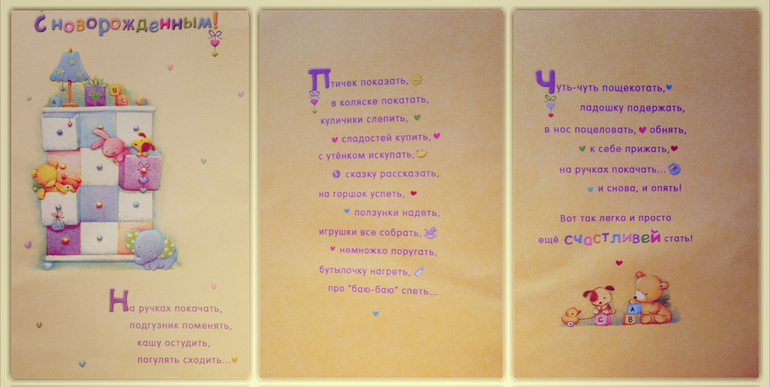 С новорожденным!
На ручках покачать,
подгузник поменять,
кашу остудить,
погулять сходить...
Птичек показать,
в коляске покатать,
куличики слепить,
сладостей купить,
с утёнком искупать,
сказку рассказать,
на горшок успеть,
ползунки надеть,
игрушки все собрать,
немножко поругать,
бутылочку нагреть,
про "баю-баю" спеть...
Чуть-чуть пощекотать,
ладошку подержать,
в нос поцеловать, обнять,
к себе прижать,
на ручках покачать...
и снова, и опять!
Вот так легко и просто
ещё счастливей стать!